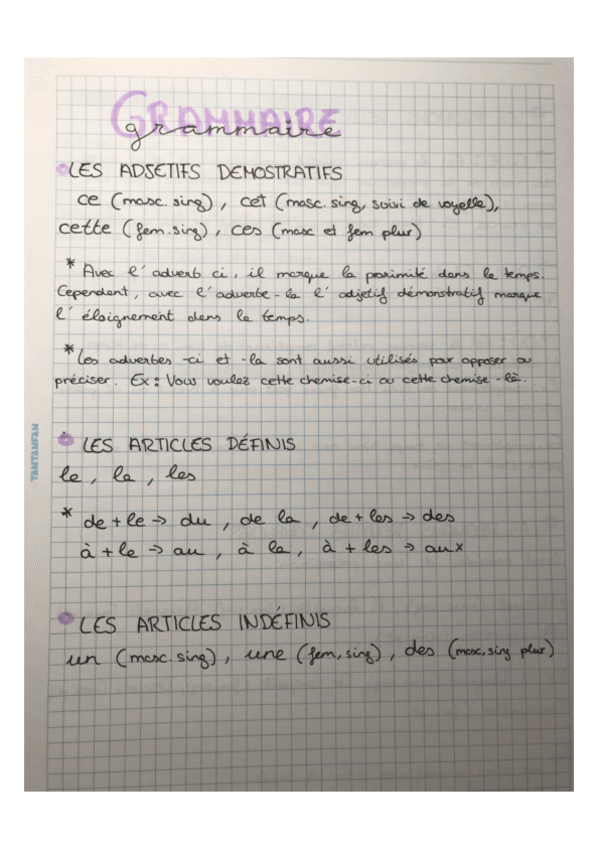 GRAMMAIRE
grammaire
LES ADJETIFS DEMOSTRATIFS
ce (masc. sing), cet (masc. sing, suivi de voyelle),
cette (fem. sing), ces (masc et fem plur)
* Avec l'adverb ci, il marque la proximité dans le temps.
Cependent, avec l'adverbe -la l'adjetif démonstratif marque
l'éloignement dans le temps.
* Les adverbes -ci et -la sont aussi utilisés pour opposer ou
préciser. Ex: Vous voulez cette chemise-ci ou cette chemise-là.
TANTANFAN
LES ARTICLES DÉFINIS
le, la, les
* de + le → du, de la, de + les → des
à + le → au, à la, à + les → aux
LES ARTICLES INDÉFINIS
un (masc. sing), une (fem, sing), des (masc, sing plur)